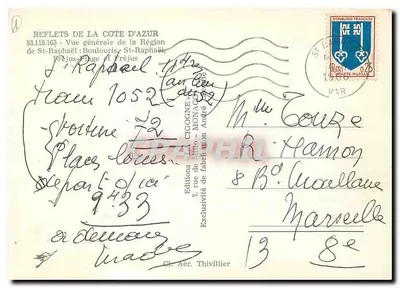 REFLETS DE LA COTE D'AZUR
83.118.163 - Vue générale de la Région
de St-Raphaël : Boulouris, St-Raphaël,
Fréjus-Plage et Fréjus
St Raphael 11h42
train 1052
(au lieu
du 52)
voiture 72
Places louées
départ d'ici
9h33
a demain
Editions "LA CIGOGNE"
7, rue
MONACO
Exclusivité de fabrication André
Cl. Aér. Thivillier
REPUBLIQUE FRANÇAISE
0,25
VAR
Mme Touze
R. Hamon
8 Bd Maillane
Marseille
13 8e